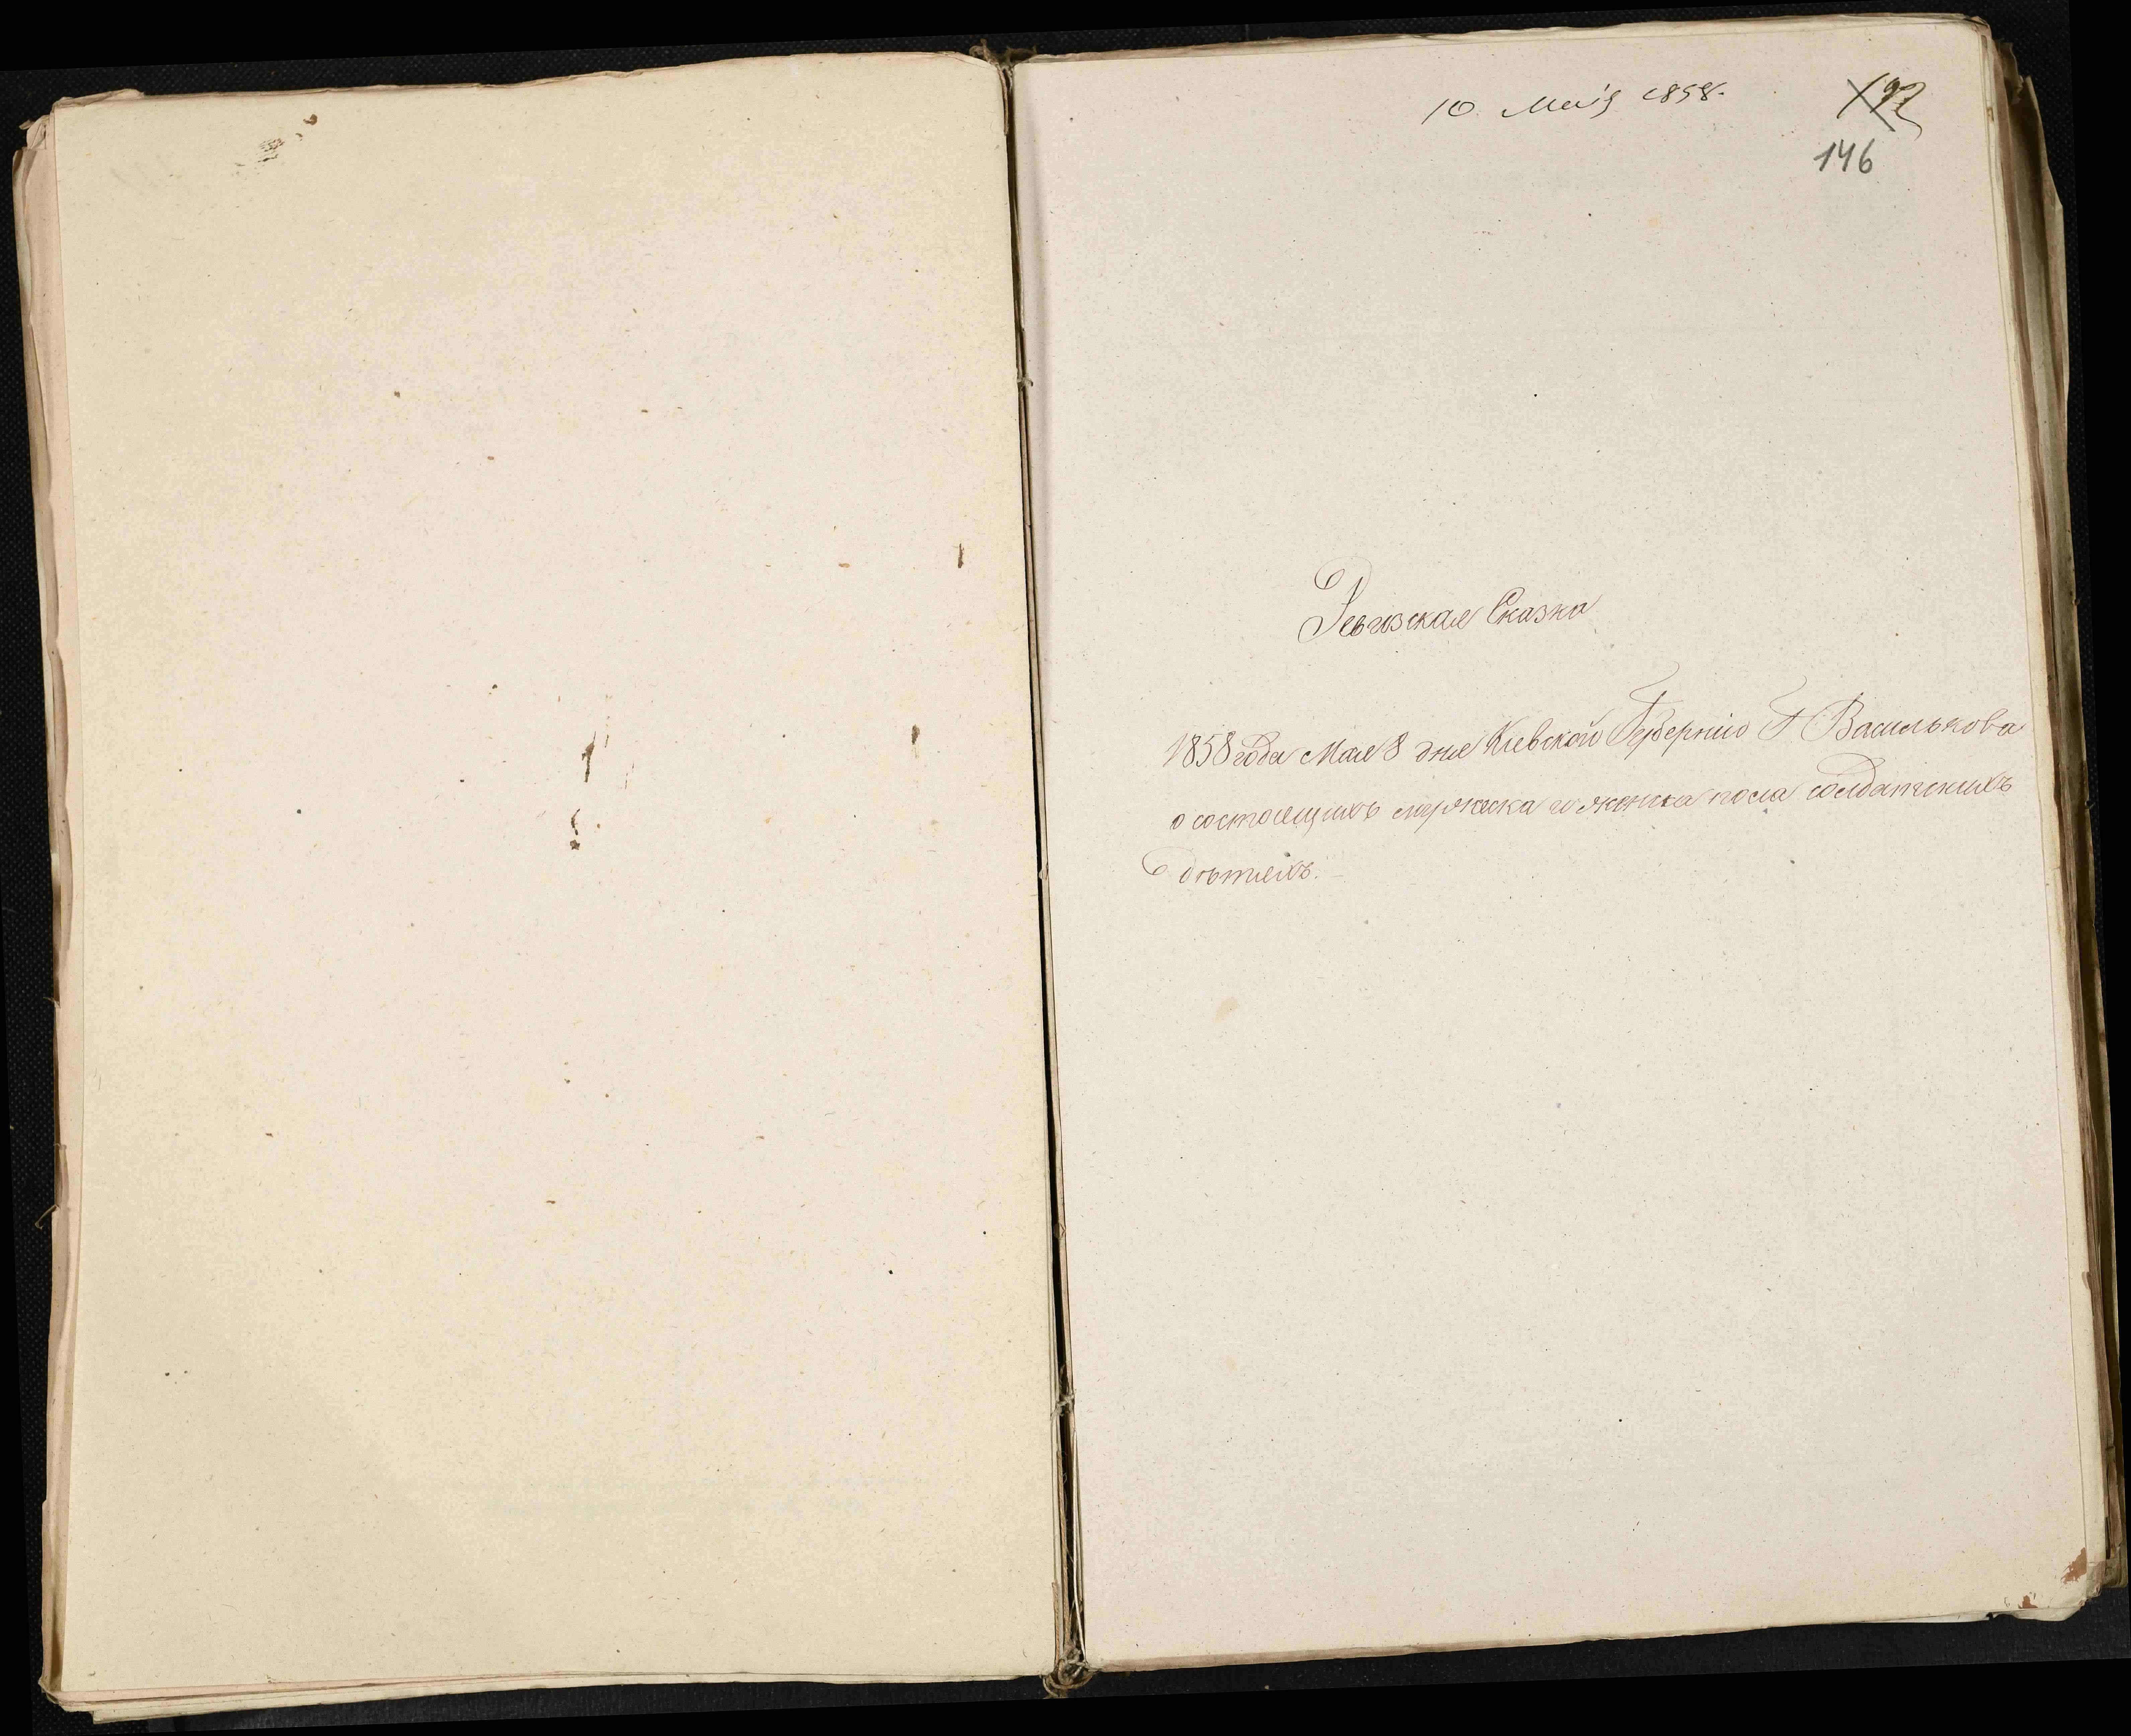 10 Маія 1858.
192
146
Ревизская Сказка
1858 года Мая 8 дня Кіевской Губерніи Г Василькова
о состоящихъ мужеска и женска пола солдатскихъ
дѣтяхъ.